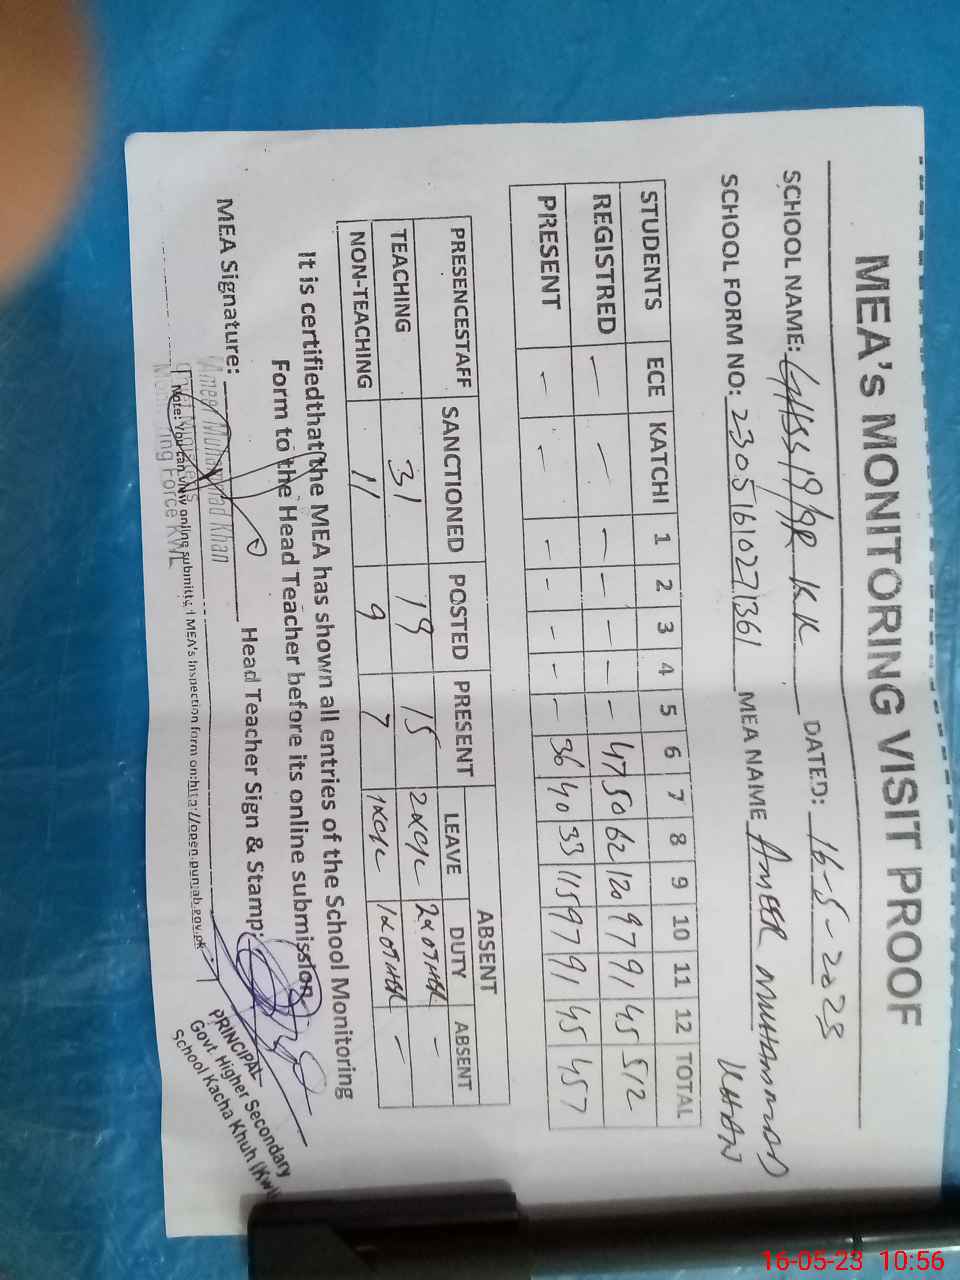 MEA's MONITORING VISIT PROOF
SCHOOL NAME: GHSS 19/9R KK DATED: 16-5-2023
SCHOOL FORM NO: 23051610271361 MEA NAME AMEER MUHAMMAD KHAN
STUDENTS ECE KATCHI 1 2 3 4 5 6 7 8 9 10 11 12 TOTAL
REGISTRED — — — — — — — 47 50 62 120 97 91 45 512
PRESENT — — — — — — — 36 40 33 115 97 91 45 457
PRESENCESTAFF SANCTIONED POSTED PRESENT ABSENT
LEAVE DUTY ABSENT
TEACHING 31 19 15 2xC/L 2xOTHER —
NON-TEACHING 11 9 7 1xC/L 1xOTHER —
It is certifiedthat the MEA has shown all entries of the School Monitoring
Form to the Head Teacher before its online submission
MEA Signature: Head Teacher Sign & Stamp:
Ameer Muhammad Khan
Monitoring Force KWL
Note: You can view online submitted MEA's Inspection form on:http://open.punjab.gov.pk
PRINCIPAL
Govt. Higher Secondary
School Kacha Khuh (Kwl)
16-05-23 10:56